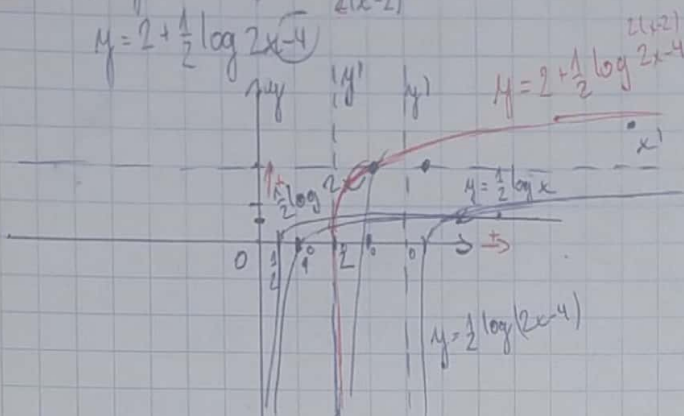 2(x-2)
y = 2 + 1/2 log 2x-4
2(x-2)
y = 2 + 1/2 log 2x-4
y
y'
y'
x'
1/2 log 2x
y = 1/2 log x
0
1/2
1
2
y = 1/2 log(2x-4)